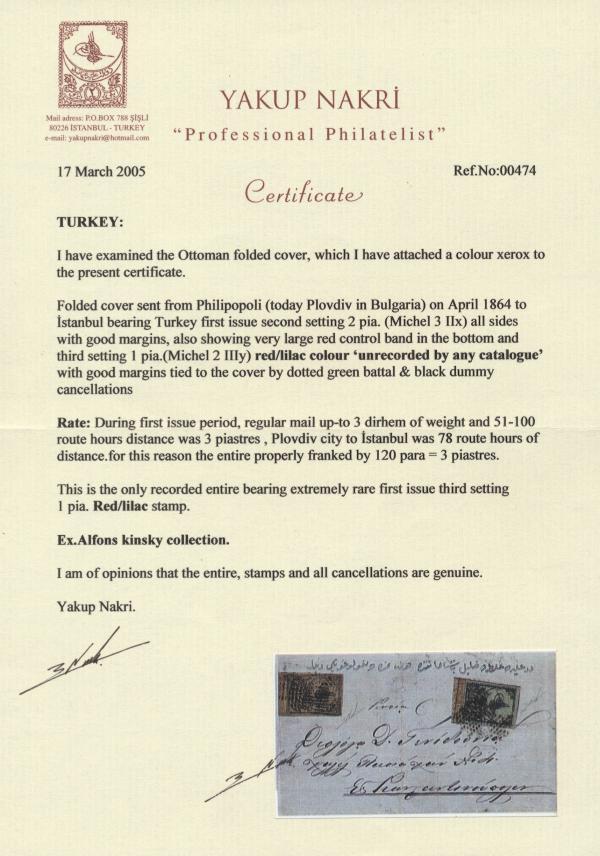 Mail adress: P.O.BOX 788 ŞİŞLİ
80226 İSTANBUL - TURKEY
e-mail: yakupnakri@hotmail.com
YAKUP NAKRİ
“Professional Philatelist”
17 March 2005
Ref.No:00474
Certificate
TURKEY:
I have examined the Ottoman folded cover, which I have attached a colour xerox to
the present certificate.
Folded cover sent from Philipopoli (today Plovdiv in Bulgaria) on April 1864 to
İstanbul bearing Turkey first issue second setting 2 pia. (Michel 3 IIx) all sides
with good margins, also showing very large red control band in the bottom and
third setting 1 pia.(Michel 2 IIIy) red/lilac colour ‘unrecorded by any catalogue’
with good margins tied to the cover by dotted green battal & black dummy
cancellations
Rate: During first issue period, regular mail up-to 3 dirhem of weight and 51-100
route hours distance was 3 piastres , Plovdiv city to İstanbul was 78 route hours of
distance.for this reason the entire properly franked by 120 para = 3 piastres.
This is the only recorded entire bearing extremely rare first issue third setting
1 pia. Red/lilac stamp.
Ex.Alfons kinsky collection.
I am of opinions that the entire, stamps and all cancellations are genuine.
Yakup Nakri.